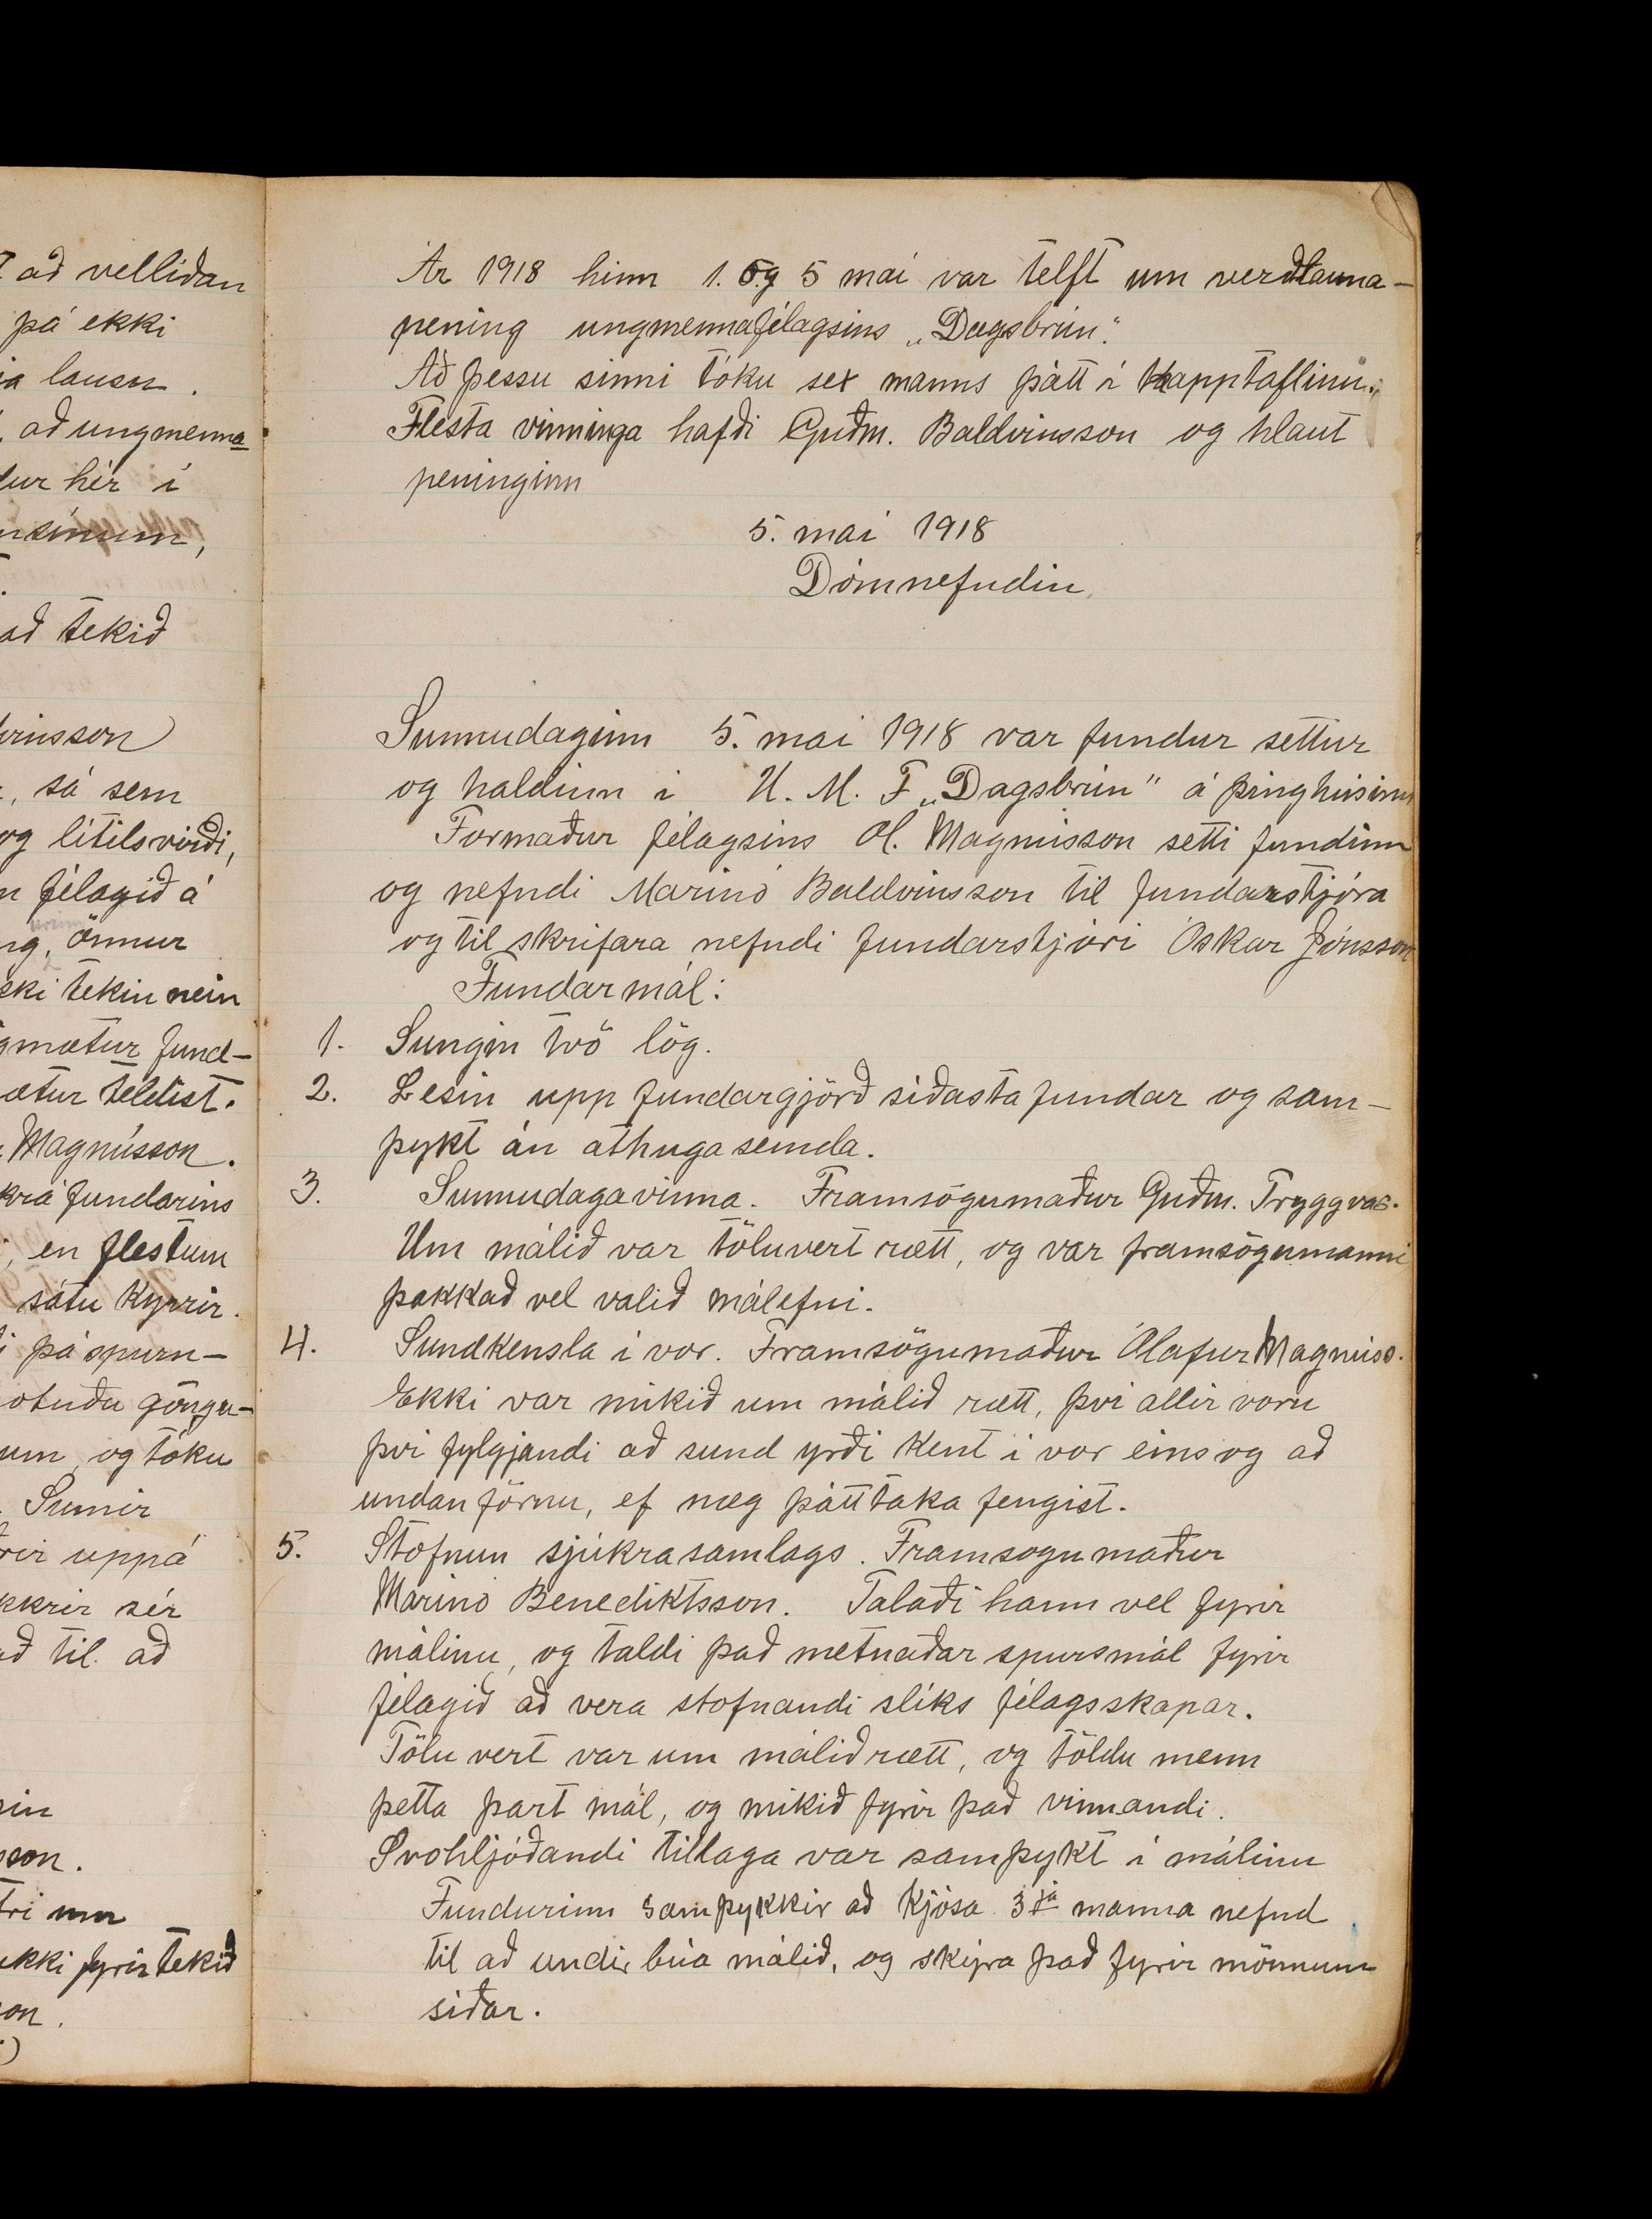 t að vellíðan
þá ekki
ia lausn.
, að ungmenna
dur hér í
nsinum,
að tekið
vinsson
, sá sem
og lítilsvirði,
n félagið á
ng, önnur
ekki tekin nein
gmætur fund-
ætur teldist.
Magnússon.
krá fundarins
, en flestum
sátu kyrrir.
i þá spurn-
otuðu göngu-
um, og tóku
. Sumir
rir uppá
kkrir sér
að til að
sin
sson.
tri um
ekki fyrir tekið
on.
Ár 1918 hinn 1. og 5 maí var telft um verðlauna-
pening ungmennafélagsins „Dagsbrún".
Að þessu sinni tóku sex manns þátt í kapptaflinu.
Flesta vinninga hafði Guðm. Baldvinsson og hlaut
peninginn
5. maí 1918
Dómnefndin
Sunnudaginn 5. mai 1918 var fundur settur
og haldinn í U. M. F „Dagsbrún" á þinghúsinu
Formaður félagsins Ól. Magnússon setti fundinn
og nefndi Marinó Baldvinsson til fundarstjóra
og til skrifara nefndi fundarstjóri Óskar Jónsson
Fundarmál:
1. Sungin tvö lög.
2. Lesin upp fundargjörð síðasta fundar og sam-
þykt án athugasemda.
3. Sunnudagavinna. Framsögumaður Guðm. Tryggvas.
Um málið var töluvert rætt, og var framsögumanni
þakkað vel valið málefni.
4. Sundkensla í vor. Framsögumaður Ólafur Magnúss.
Ekki var mikið um málið rætt, því allir voru
því fylgjandi að sund yrði kent í vor eins og að
undanförnu, ef næg þátttaka fengist.
5. Stofnun sjúkrasamlags. Framsogumaður
Marinó Benediktsson. Talaði hann vel fyrir
málinu, og taldi það metnaðar spursmál fyrir
félagið að vera stofnandi slíks félagsskapar.
Tölu vert var um málið rætt, og töldu menn
þetta þart mál, og mikið fyrir það vinnandi.
Svohljóðandi tillaga var samþykt í málinu
Fundurinn samþykkir að kjósa 3já manna nefnd
til að undir búa málið, og skýra það fyrir mönnum
síðar.